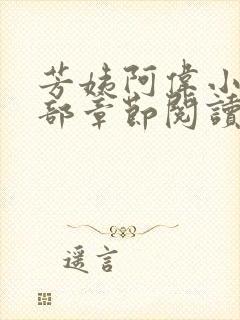 芳姨阿偉小
部章節閱讀
遥言